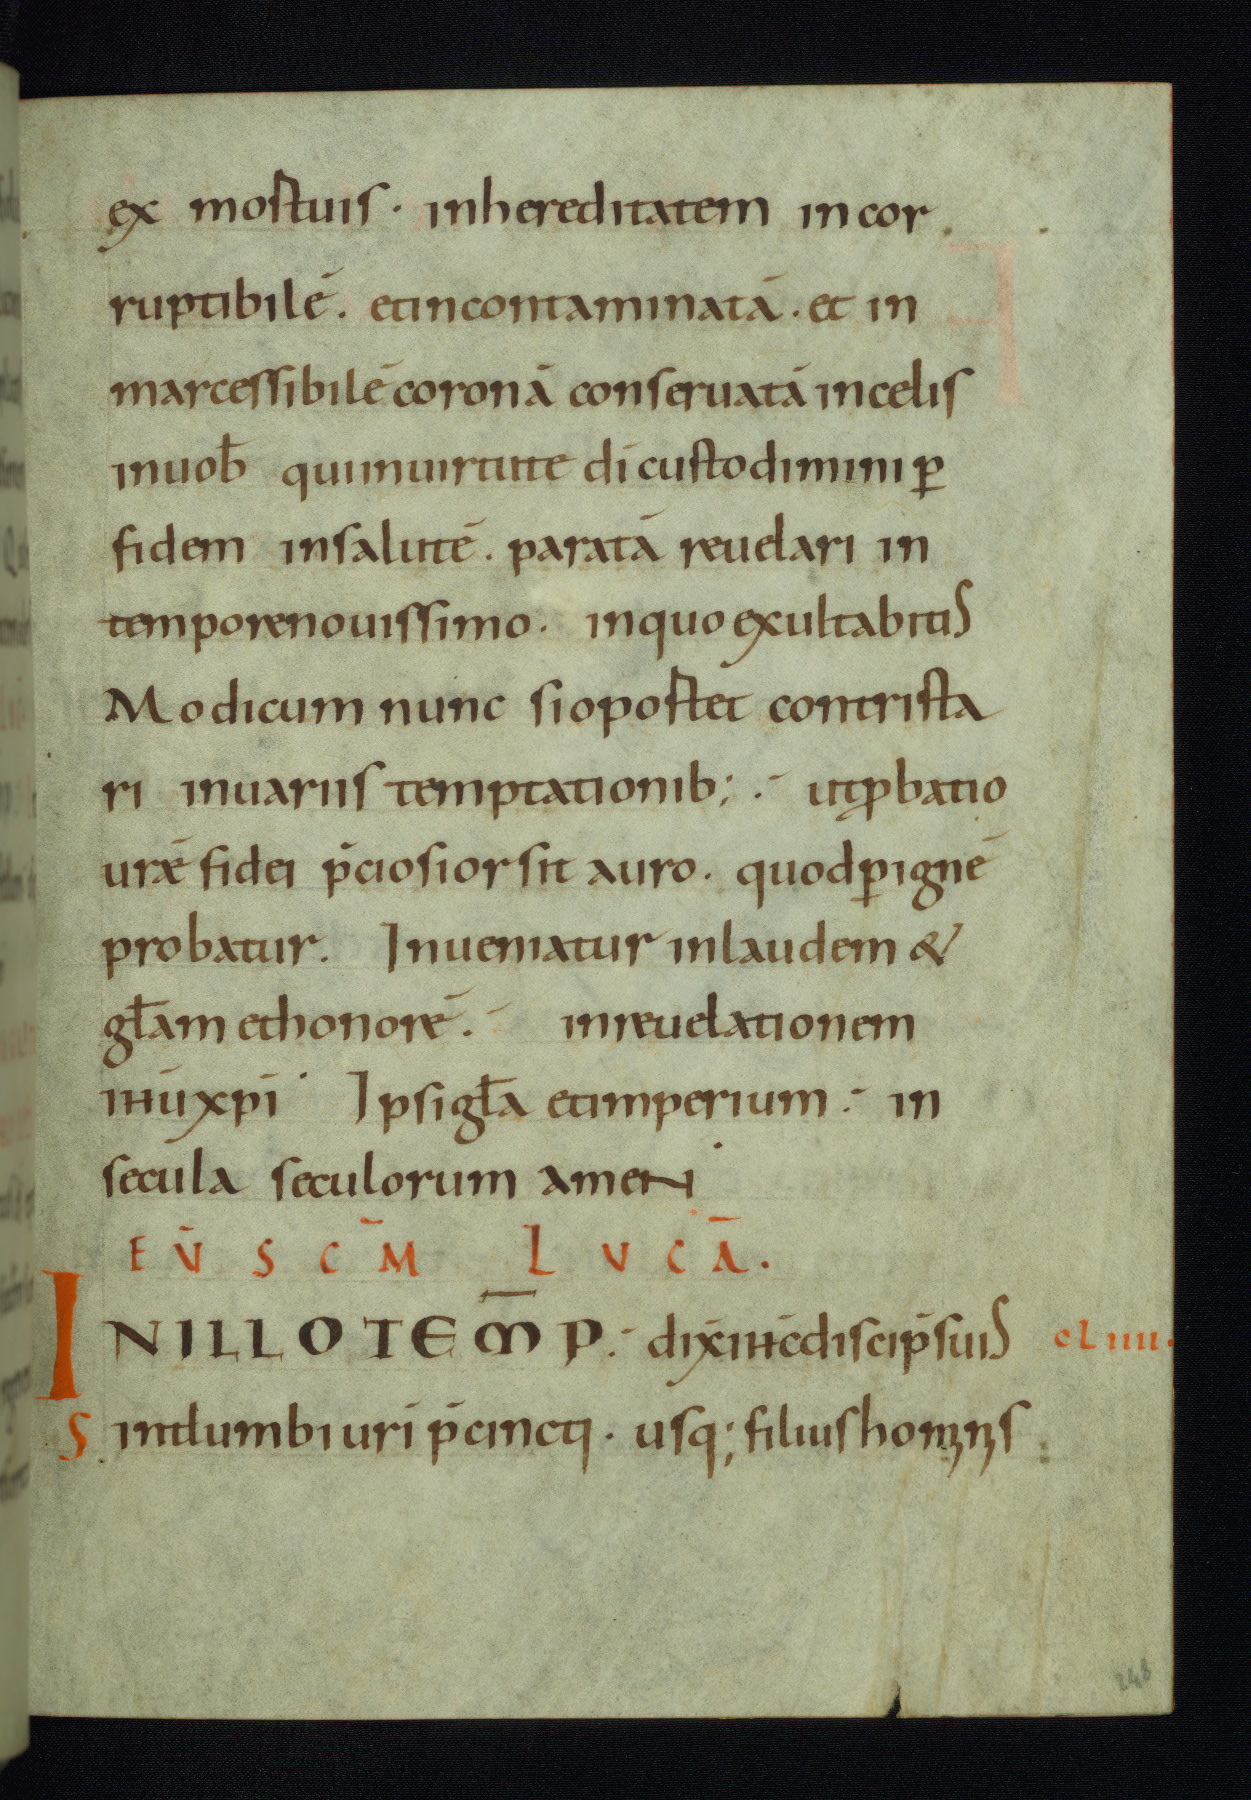 ex mortuis · inhereditatem incor
ruptibilē . etincontaminatā . et in
marcessibilē coronā conseruatā incelis
inuob̄ quiinuirtute dī custodimini ꝑ
fidem insalutē . paratā reuelari in
temporenouissimo · inquo exultabitis
Modicum nunc sioportet contrista
ri inuariis temptationib; · utꝓbatio
urǣ fidei p̄ciosior sit auro . quodꝑignē
probatur . Inueniatur inlaudem &
gƚam ethonorē . inreuelationem
ihū xpī Ipsi gƚa etimperium · in
secula seculorum amen
EV̄ S C̄M LVCĀ .
INILLOTEM̄P . dix̄ ihc̄ discip̄ suis cLIIII .
Sintlumbi urī p̄cincti . usq; filius hominis
248